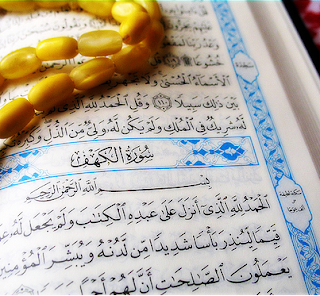 وَعْدُ رَبِّنَا
خُشُوعًا
الْأَسْمَاءُ الْحُسْنَىٰ وَلَا
بَيْنَ ذَٰلِكَ سَبِيلًا ﴿١١٠﴾ وَقُلِ الْحَمْدُ لِلَّهِ الَّذِي
لَهُ شَرِيكٌ فِي الْمُلْكِ وَلَمْ يَكُنْ لَهُ وَلِيٌّ مِنَ الذُّلِّ وَكَبِّرْهُ
سُورَةُ الْكَهْفِ
بِسْمِ اللَّهِ الرَّحْمَٰنِ الرَّحِيمِ
الْحَمْدُ لِلَّهِ الَّذِي أَنْزَلَ عَلَىٰ عَبْدِهِ الْكِتَابَ وَلَمْ يَجْعَلْ لَهُ
قَيِّمًا لِيُنْذِرَ بَأْسًا شَدِيدًا مِنْ لَدُنْهُ وَيُبَشِّرَ الْمُؤْمِنِينَ
يَعْمَلُونَ الصَّالِحَاتِ أَنَّ لَهُمْ